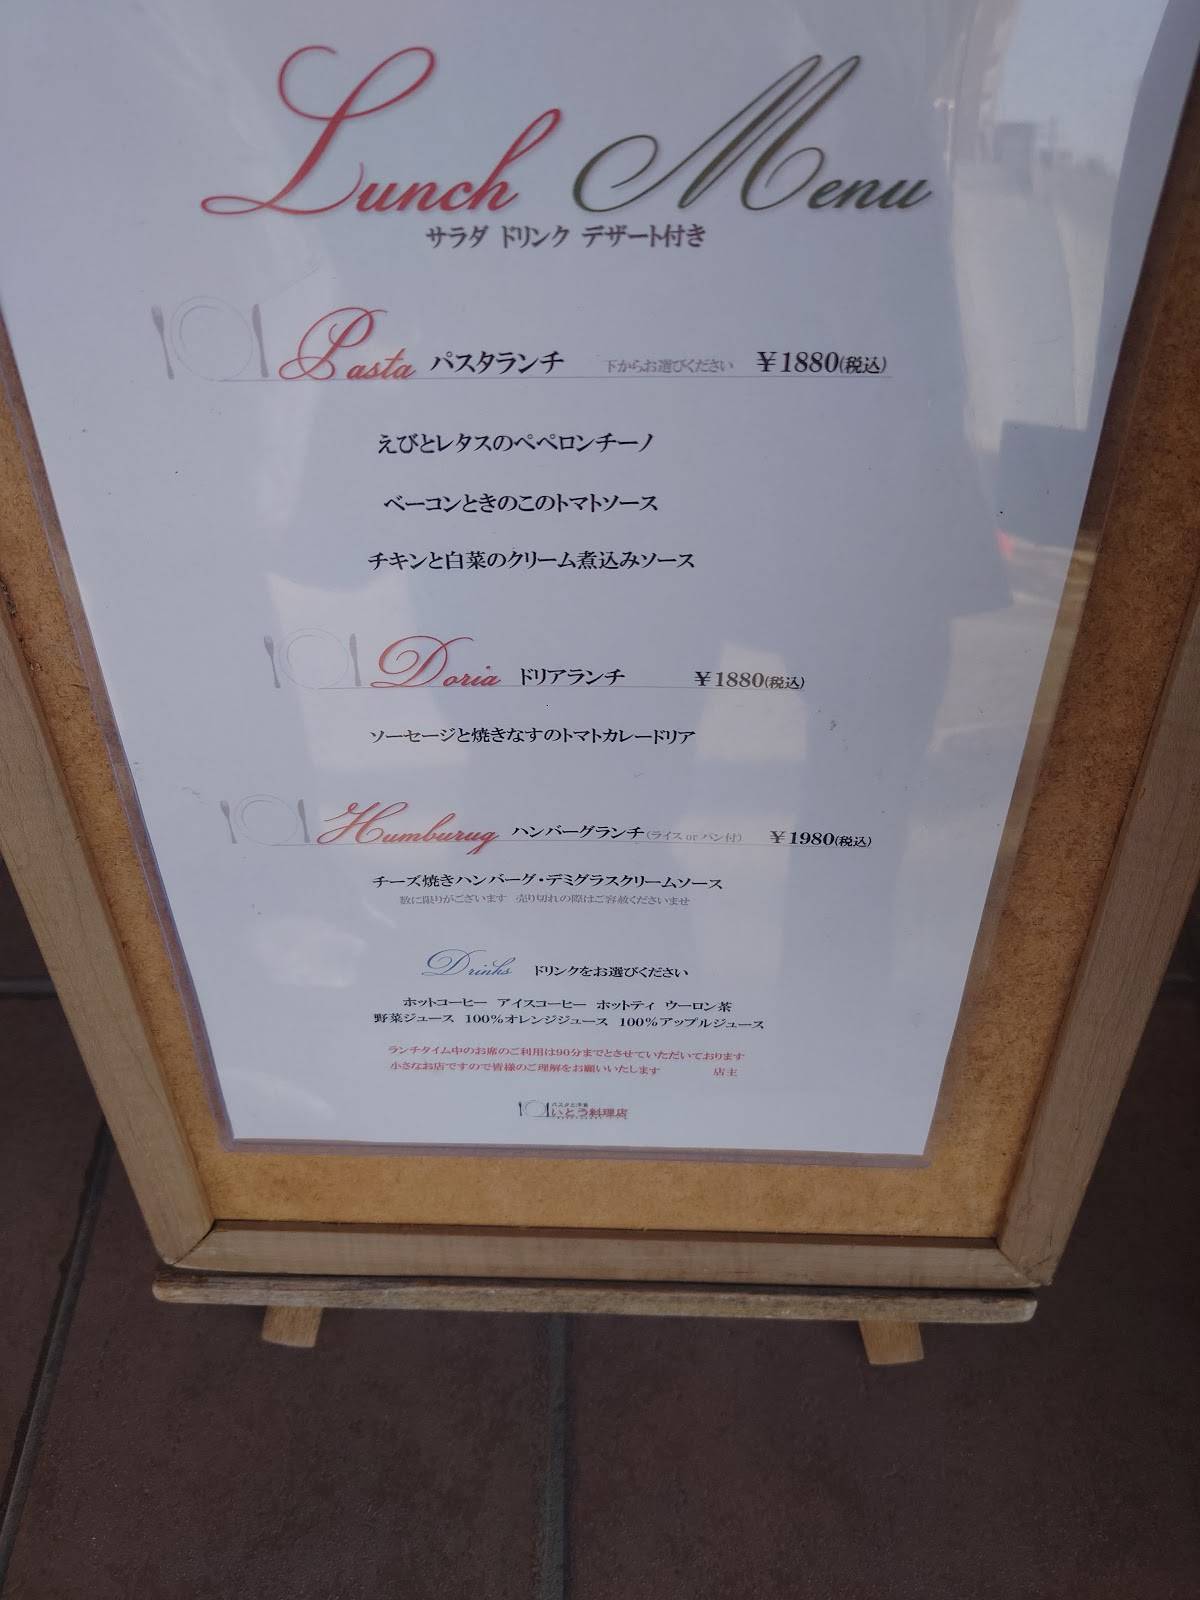 Lunch Menu
サラダ ドリンク デザート付き
Pasta パスタランチ 下からお選びください ￥1880(税込)
えびとレタスのペペロンチーノ
ベーコンときのこのトマトソース
チキンと白菜のクリーム煮込みソース
Doria ドリアランチ ￥1880(税込)
ソーセージと焼きなすのトマトカレードリア
Humburug ハンバーグランチ(ライス or パン付) ￥1980(税込)
チーズ焼きハンバーグ・デミグラスクリームソース
数に限りがございます 売り切れの際はご容赦くださいませ
Drinks ドリンクをお選びください
ホットコーヒー アイスコーヒー ホットティ ウーロン茶
野菜ジュース 100%オレンジジュース 100%アップルジュース
ランチタイム中のお席のご利用は90分までとさせていただいております
小さなお店ですので皆様のご理解をお願いいたします 店主
パスタと洋食
いとう料理店